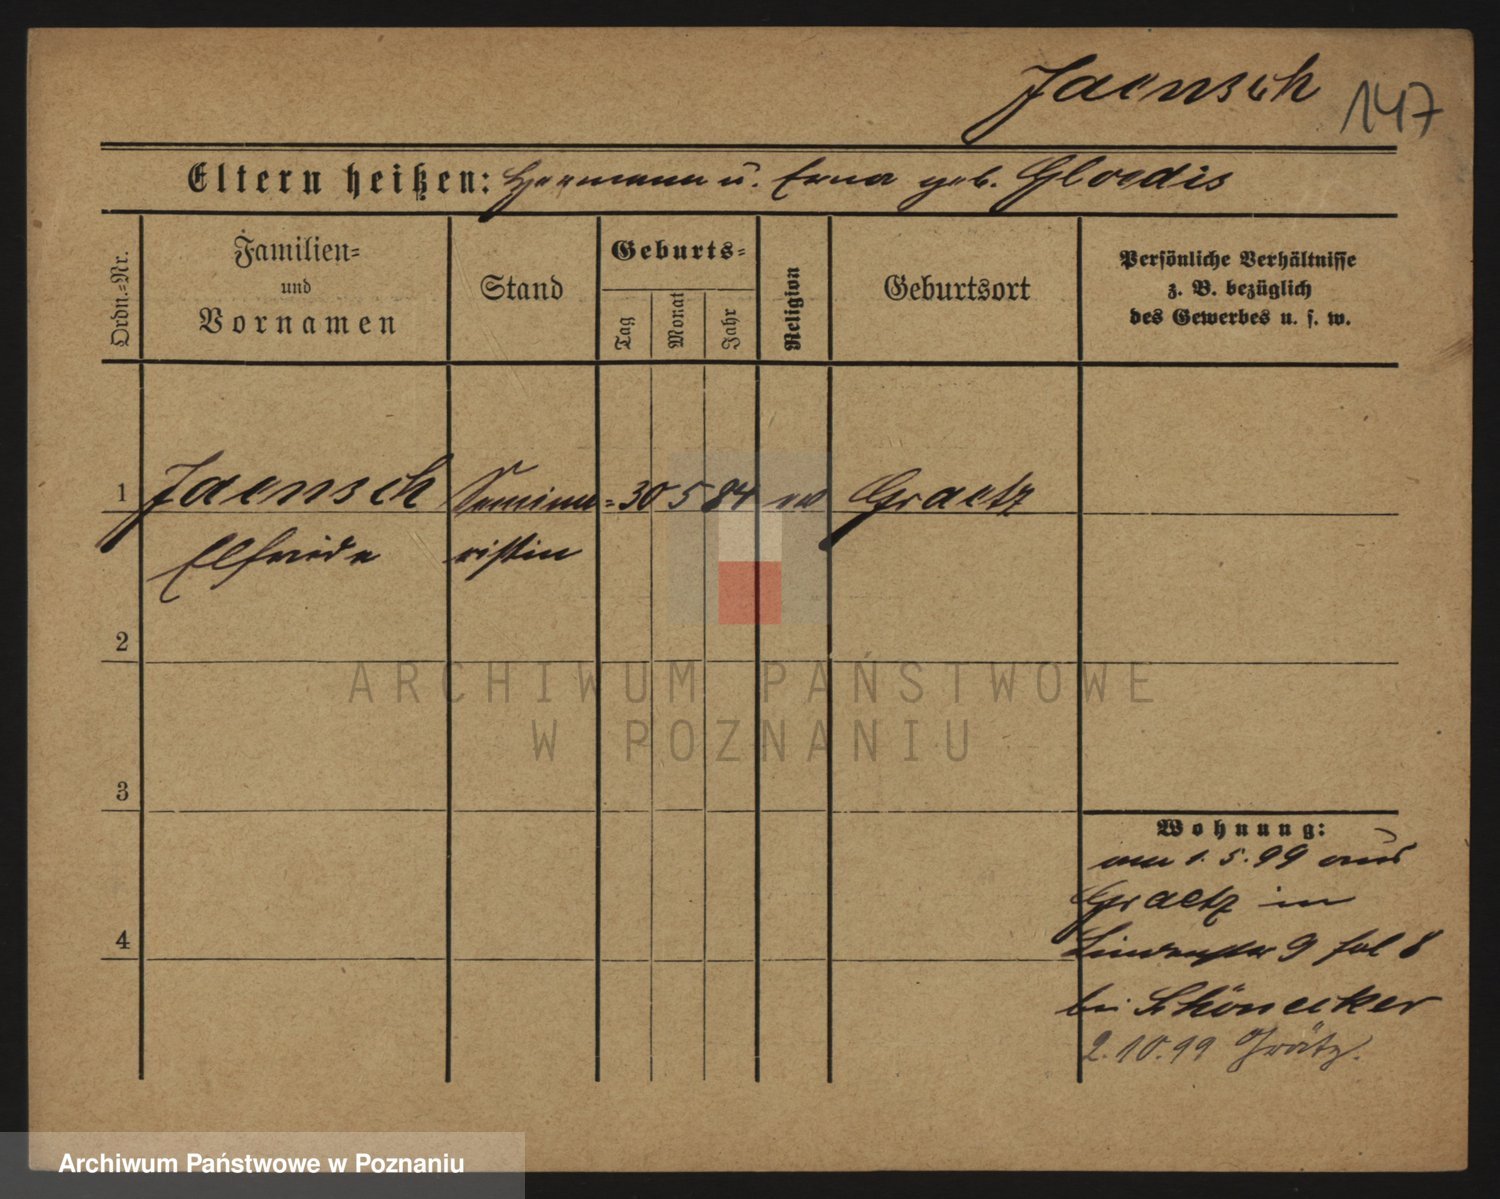 Jaensch 147
Eltern heißen: Hermann u. Erna geb. Gloedis
Ordn.-Nr.
Familien-
und
Vornamen
Stand
Geburts-
Tag Monat Jahr
Religion
Geburtsort
Persönliche Verhältnisse
z. B. bezüglich
des Gewerbes u. s. w.
1 Jaensch Semina- 30 5 84 ev Graetz
Elfriede ristin
2
3
4
Wohnung:
am 1.5.99 aus
Graetz in
Lindenstr 9 fol 8
bei Schönecker
2.10.99 Grätz.
ARCHIWUM PAŃSTWOWE
W POZNANIU
Archiwum Państwowe w Poznaniu